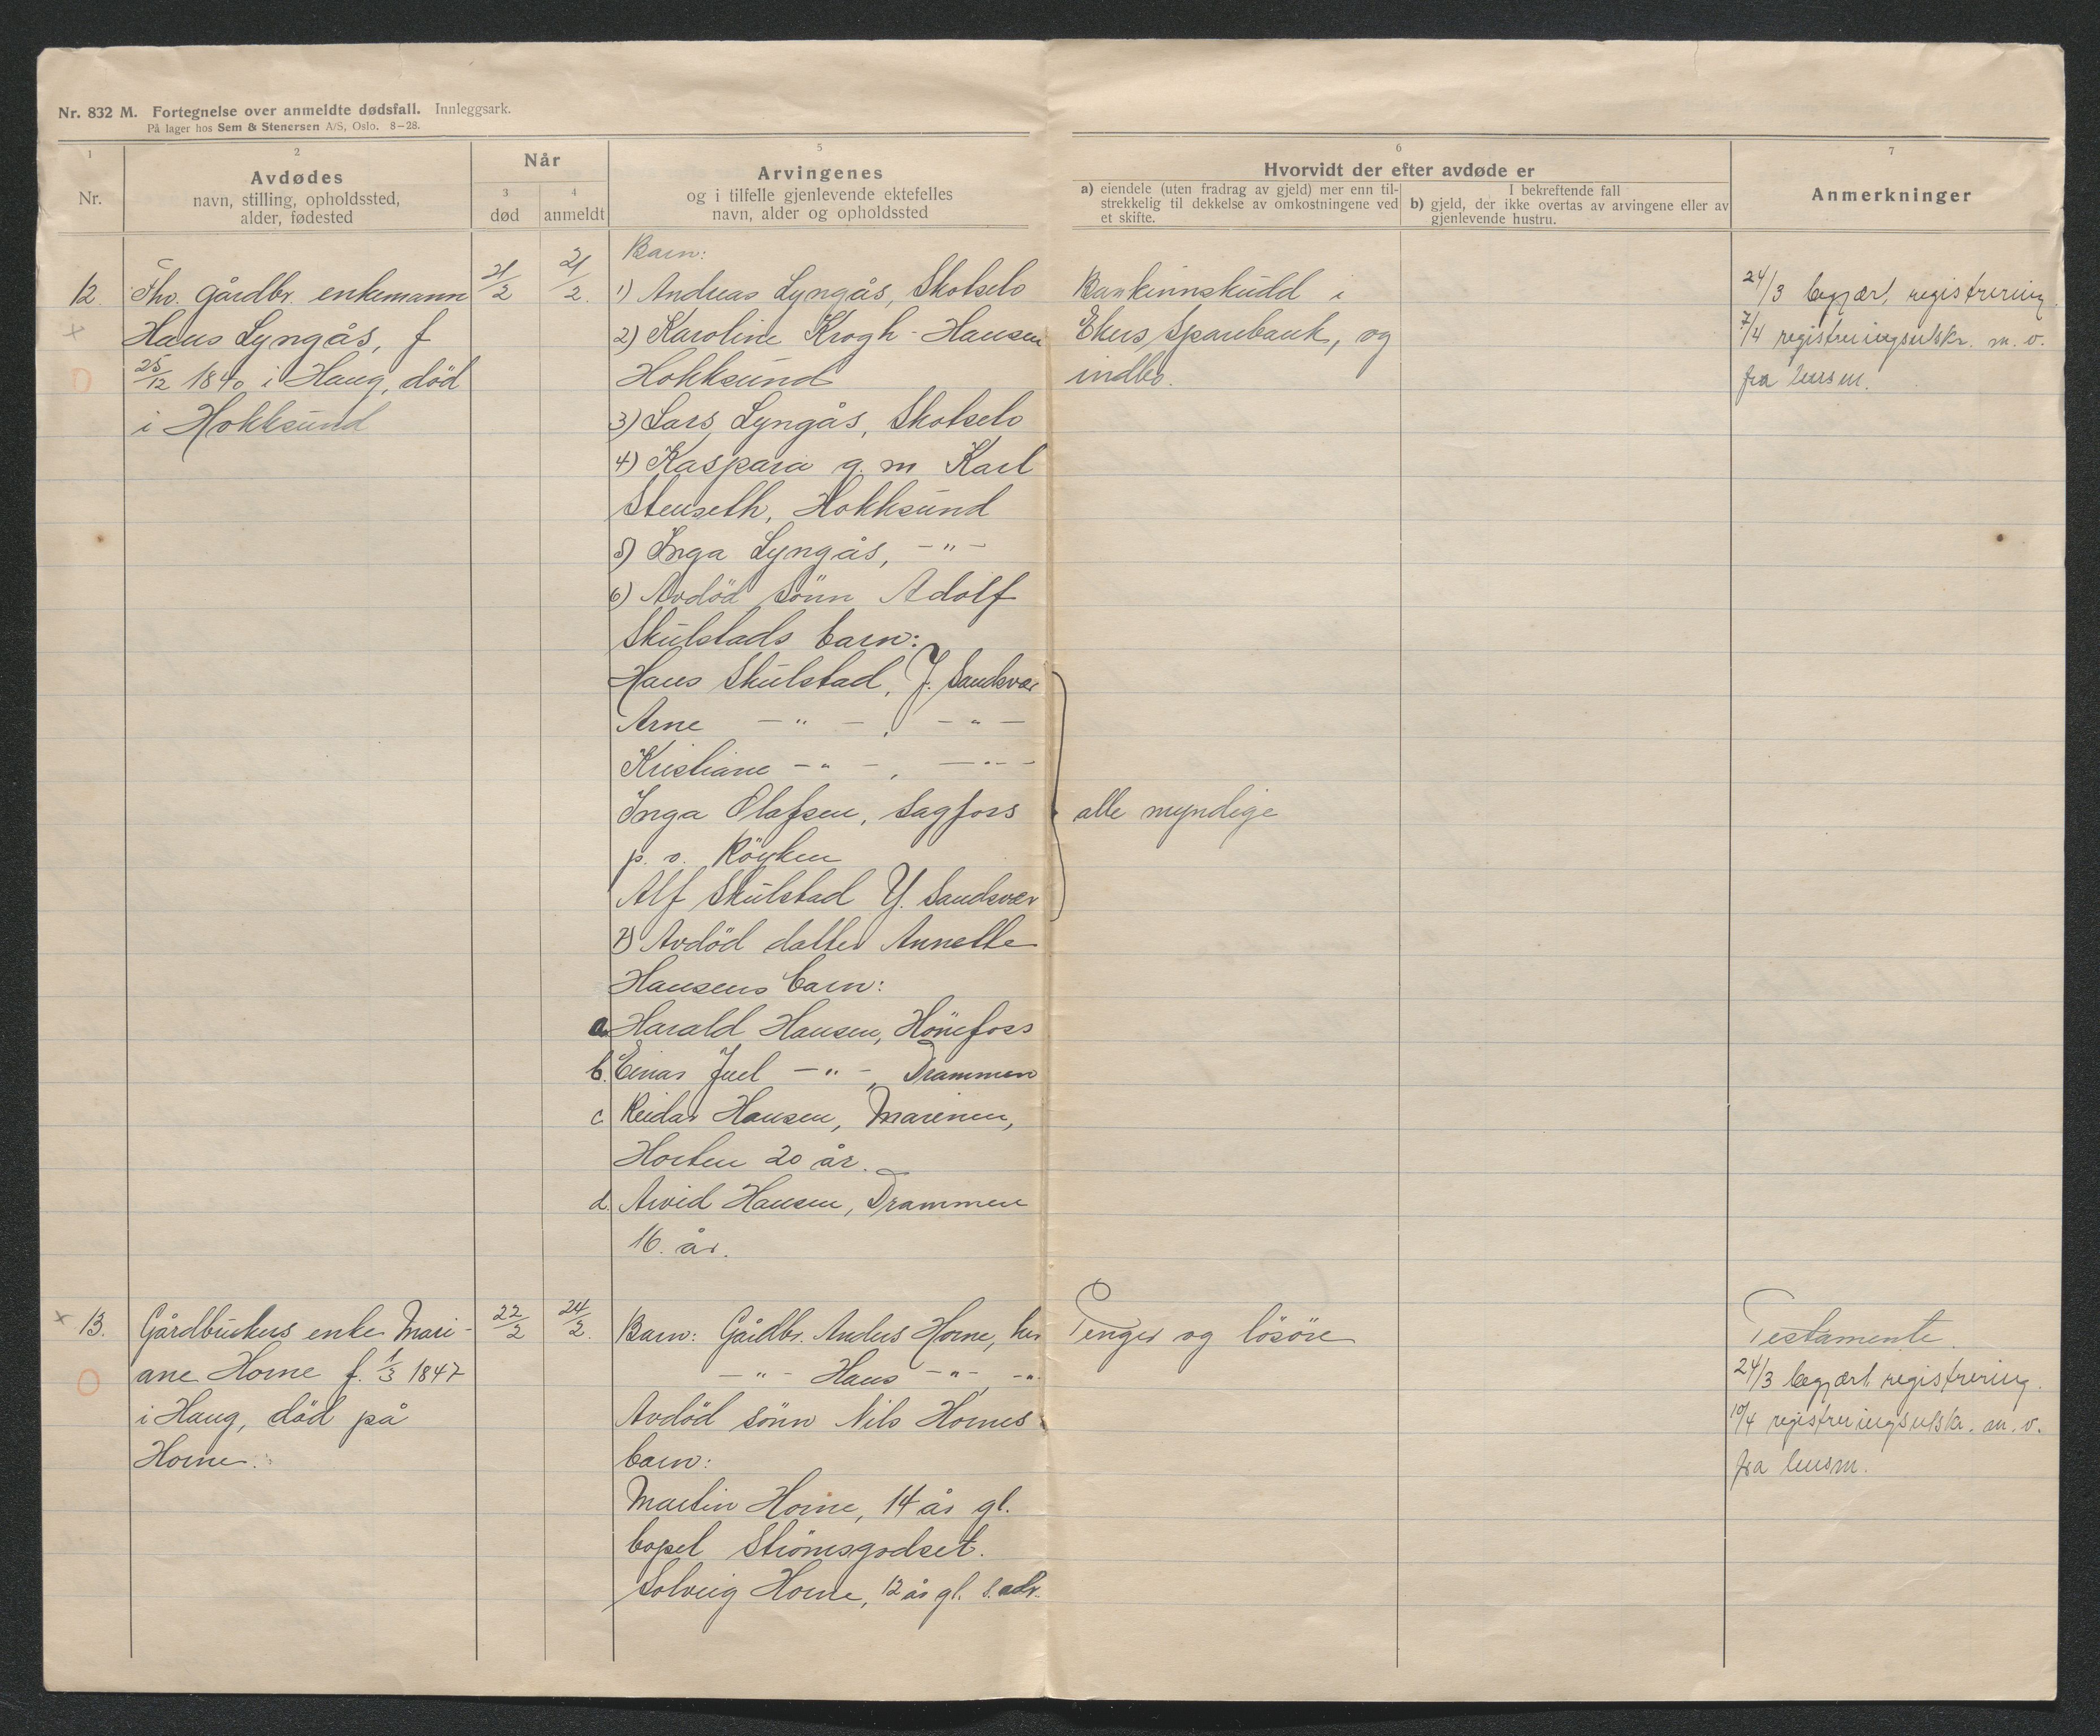 Nr. 832 M. Fortegnelse over anmeldte dødsfall. Innleggsark.
På lager hos Sem & Stenersen A/S, Oslo. 8–28.
1
Nr.
2
Avdødes
navn, stilling, opholdssted,
alder, fødested
Når
3
død
4
anmeldt
5
Arvingenes
og i tilfelle gjenlevende ektefelles
navn, alder og opholdssted
6
Hvorvidt der efter avdøde er
a) eiendele (uten fradrag av gjeld) mer enn til-
strekkelig til dekkelse av omkostningene ved
et skifte.
I bekreftende fall
b) gjeld, der ikke overtas av arvingene eller av
gjenlevende hustru.
7
Anmerkninger
12.
Fhv. gårdbr. enkemann
Hans Lyngås, f
25/12 1840 i Haug, död
i Hokksund
21/2
21/2.
Barn:
1) Andreas Lyngås, Skotselv
2) Karoline Krogh-Hansen
Hokksund
3) Lars Lyngås, Skotselv
4) Kaspara g. m. Karl
Stenseth, Hokksund
5) Inga Lyngås, -"-
6) Avdöd sönn Adolf
Skulstads barn:
Hans Skulstad, Y. Sandsvær
Arne -"-, -"-
Kristiane -"-, -"-
Inga Olafsen, Sagfoss
p. o. Röyken
Alf Skulstad Y. Sandsvær
7) Avdöd datter Annette
Hansens barn:
a Harald Hansen, Hönefoss
b. Einar Juel -"-, Drammen
c Reidar Hansen, Marinen,
Horten 20 år.
d. Arvid Hansen, Drammen
16 år.
Bankinnskudd i
Ekers Sparebank, og
indbo.
alle myndige
24/3 begjær. registrering.
7/4 registreringsutskr. m. v.
fra lensm.
13.
Gårdbrukers enke Mari-
ane Horne f. 1/3 1847
i Haug, död på
Horne.
22/2
24/2.
Barn: Gårdbr. Anders Horne, her
-"- Hans -"-, -"-
Avdöd sönn Nils Hornes
barn:
Martin Horne, 14 år gl.
bopel Strömsgodset.
Solveig Horne, 12 år gl. s. adr.
Penger og lösöre
Testamente.
24/3 begjært registrering.
10/4 registreringsutskr. m. v.
fra lensm.